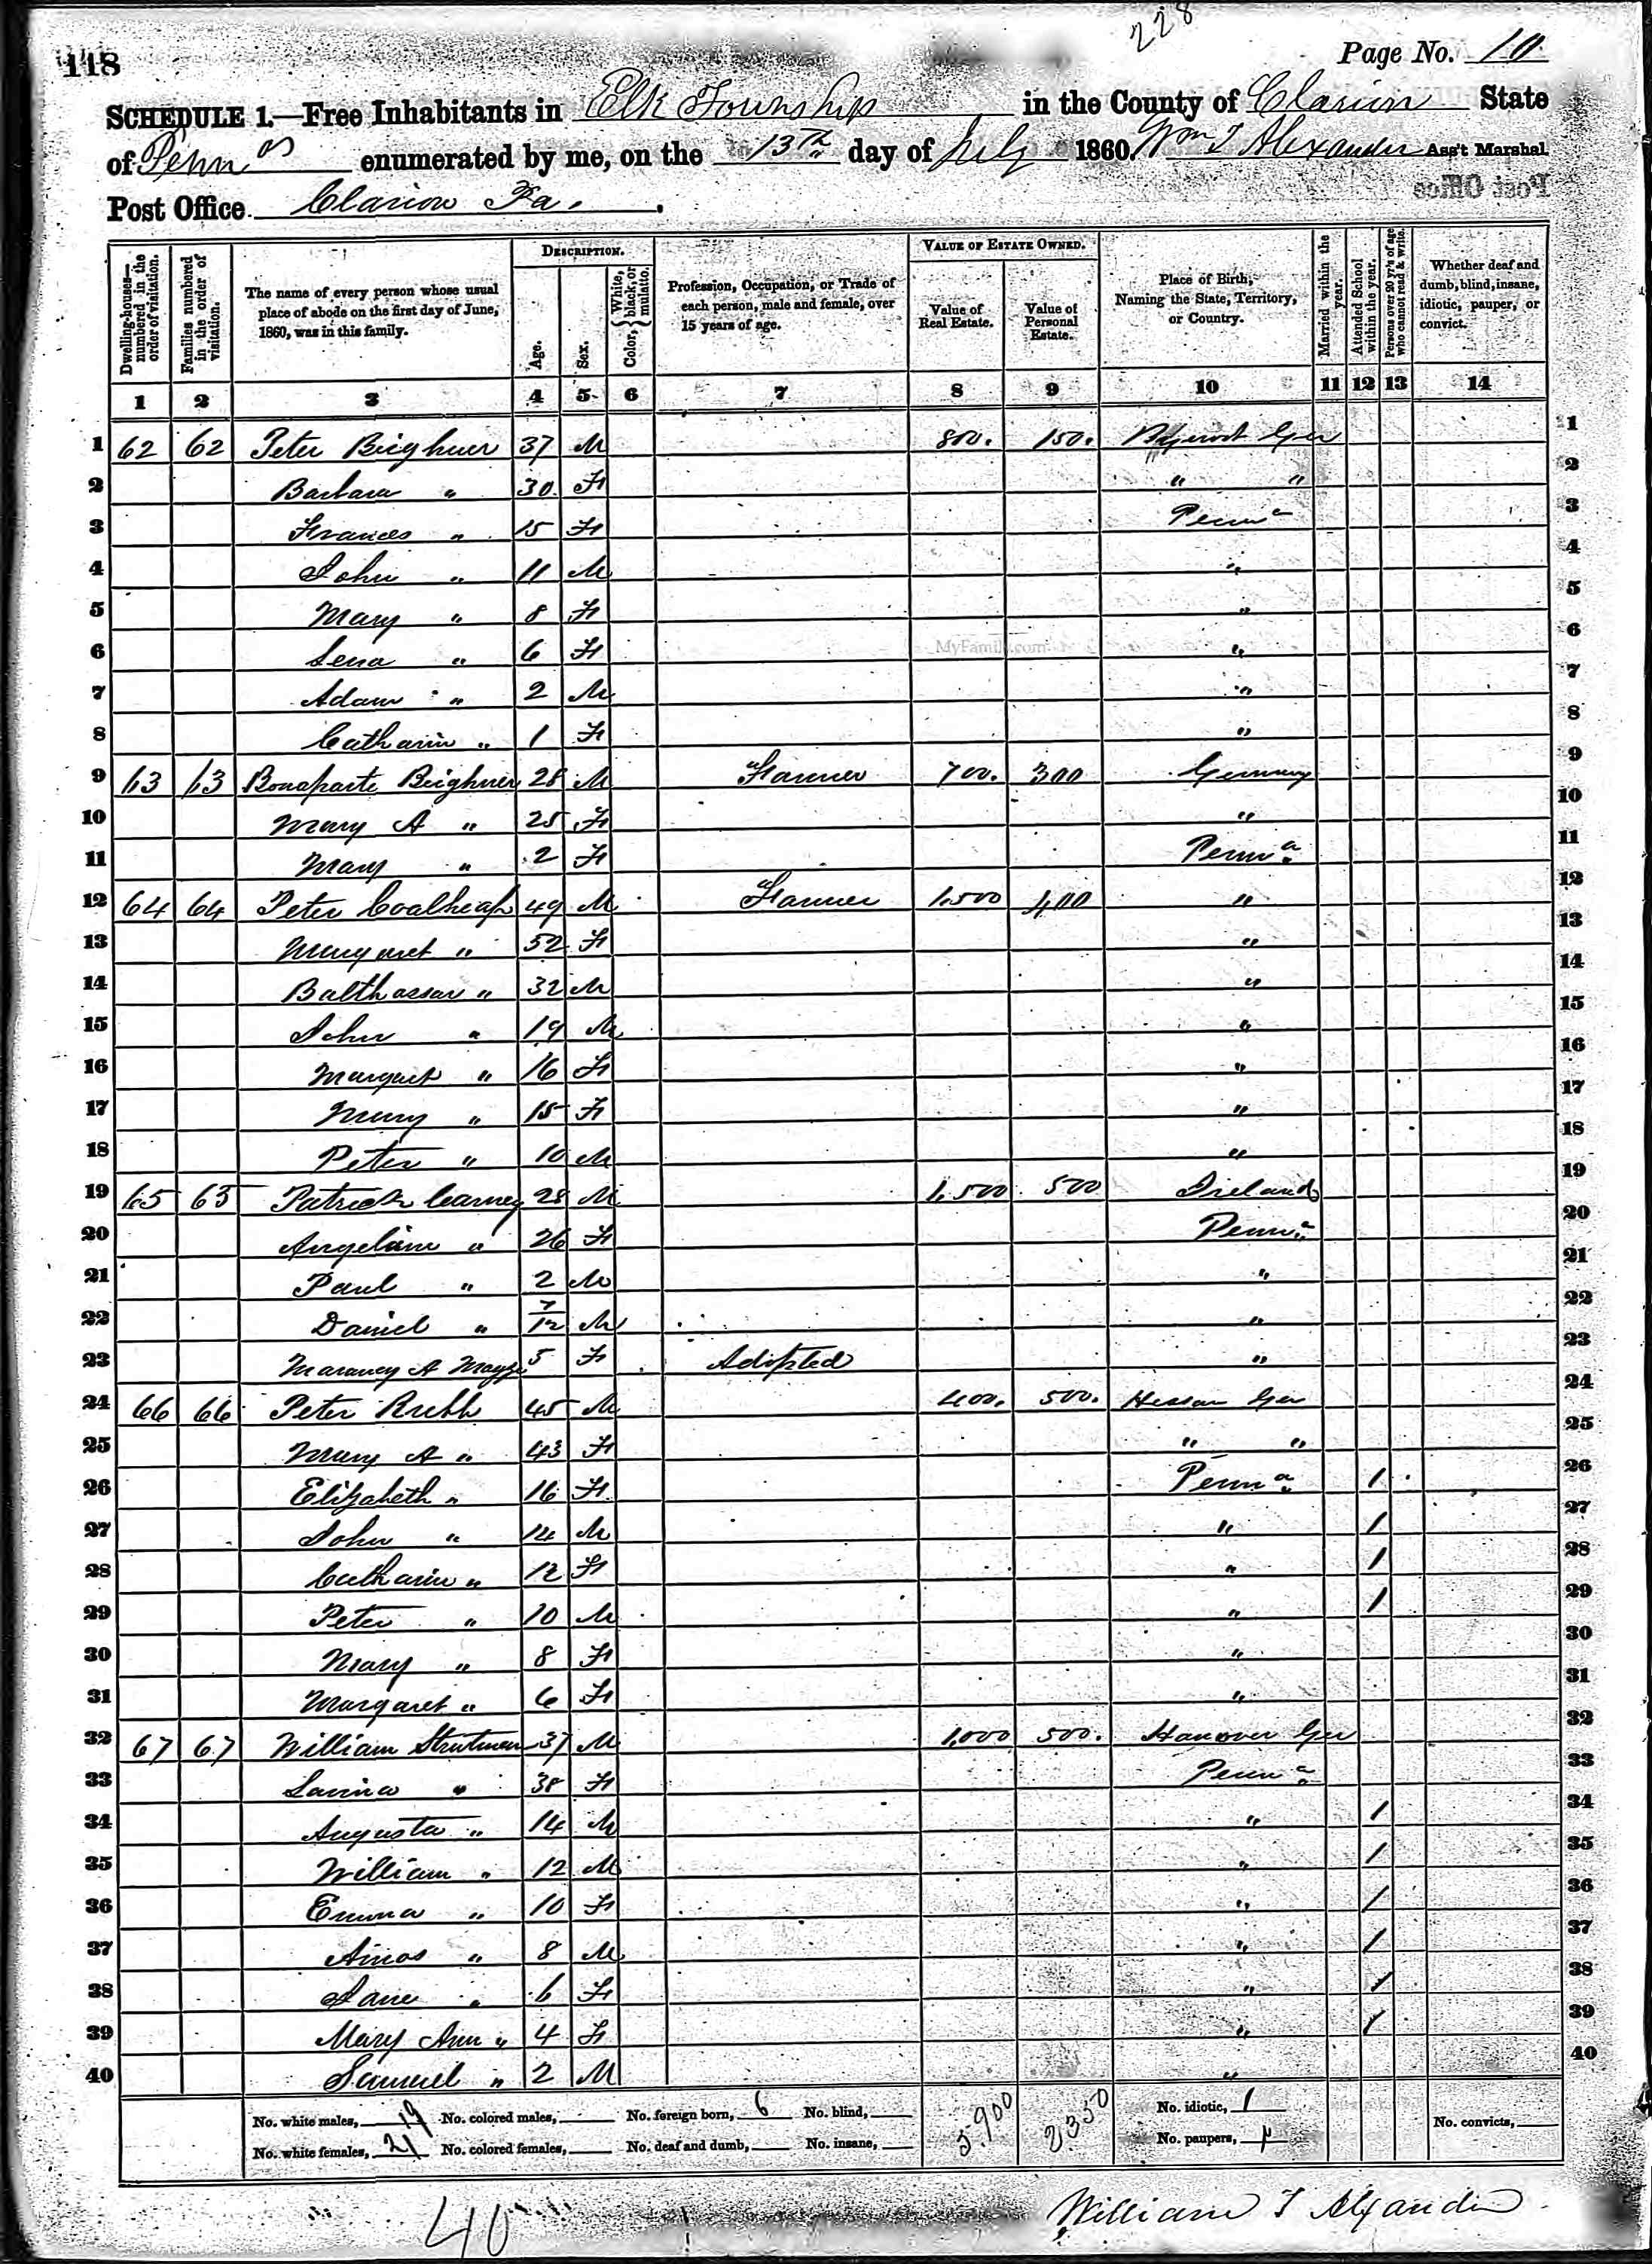 228
118
Page No. 10
SCHEDULE 1.—Free Inhabitants in Elk Township in the County of Clarion State
of Penn a enumerated by me, on the 13th day of July 1860. Wm T Alexander Ass't Marshal.
Post Office
Post Office Clarion Pa.
Dwelling-houses—numbered in the order of visitation.
Families numbered in the order of visitation.
The name of every person whose usual place of abode on the first day of June, 1860, was in this family.
DESCRIPTION.
Age.
Sex.
Color, White, black, or mulatto.
Profession, Occupation, or Trade of each person, male and female, over 15 years of age.
VALUE OF ESTATE OWNED.
Value of Real Estate.
Value of Personal Estate.
Place of Birth, Naming the State, Territory, or Country.
Married within the year.
Attended School within the year.
Persons over 20 y'rs of age who cannot read & write.
Whether deaf and dumb, blind, insane, idiotic, pauper, or convict.
1 2 3 4 5 6 7 8 9 10 11 12 13 14
1 62 62 Peter Beighner 37 M 800. 150. Ger 1
2 Barbara " 30 F " " 2
3 Frances " 15 F Penn a 3
4 John " 11 M " 4
5 Mary " 8 F " 5
6 Lena " 6 F " 6
MyFamily.com
7 Adam " 2 M " 7
8 Catharin " 1 F " 8
9 63 63 Bonaparte Beighner 28 M Farmer 700. 300 Germany 9
10 Mary A " 25 F " 10
11 Mary " 2 F Penn a. 11
12 64 64 Peter Coalheap 49 M Farmer 1,500 400 " 12
13 Margaret " 52 F " 13
14 Balthassar " 32 M " 14
15 John " 19 M " 15
16 Margaret " 16 F " 16
17 Mary " 15 F " 17
18 Peter " 10 M " 18
19 65 65 Patrick Carney 28 M 1,500 500 Ireland 19
20 Angeline " 26 F Penn a 20
21 Paul " 2 M " 21
22 Daniel " 7/12 M " 22
23 A 5 F Adopted " 23
24 66 66 Peter 45 M 400. 500. Hessan Ger 24
25 Mary A " 43 F " " 25
26 Elizabeth " 16 F Penn a. / 26
27 John " 14 M " / 27
28 Catharin " 12 F " / 28
29 Peter " 10 M " / 29
30 Mary " 8 F " 30
31 Margaret " 6 F " 31
32 67 67 William Strutmen 37 M 1,000 500. Hanover Ger 32
33 " 38 F Penn a 33
34 Augusta " 14 M " / 34
35 William " 12 M " / 35
36 Emma " 10 F " / 36
37 Amos " 8 M " / 37
38 Jane " 6 F " / 38
39 Mary Ann " 4 F " / 39
40 Samuel " 2 M " 40
No. white males, 19 No. colored males, No. foreign born, 6 No. blind, 5,900 2350 No. idiotic, 1
No. white females, 21 No. colored females, No. deaf and dumb, No. insane, No. paupers, No. convicts,
40
William T Alexander